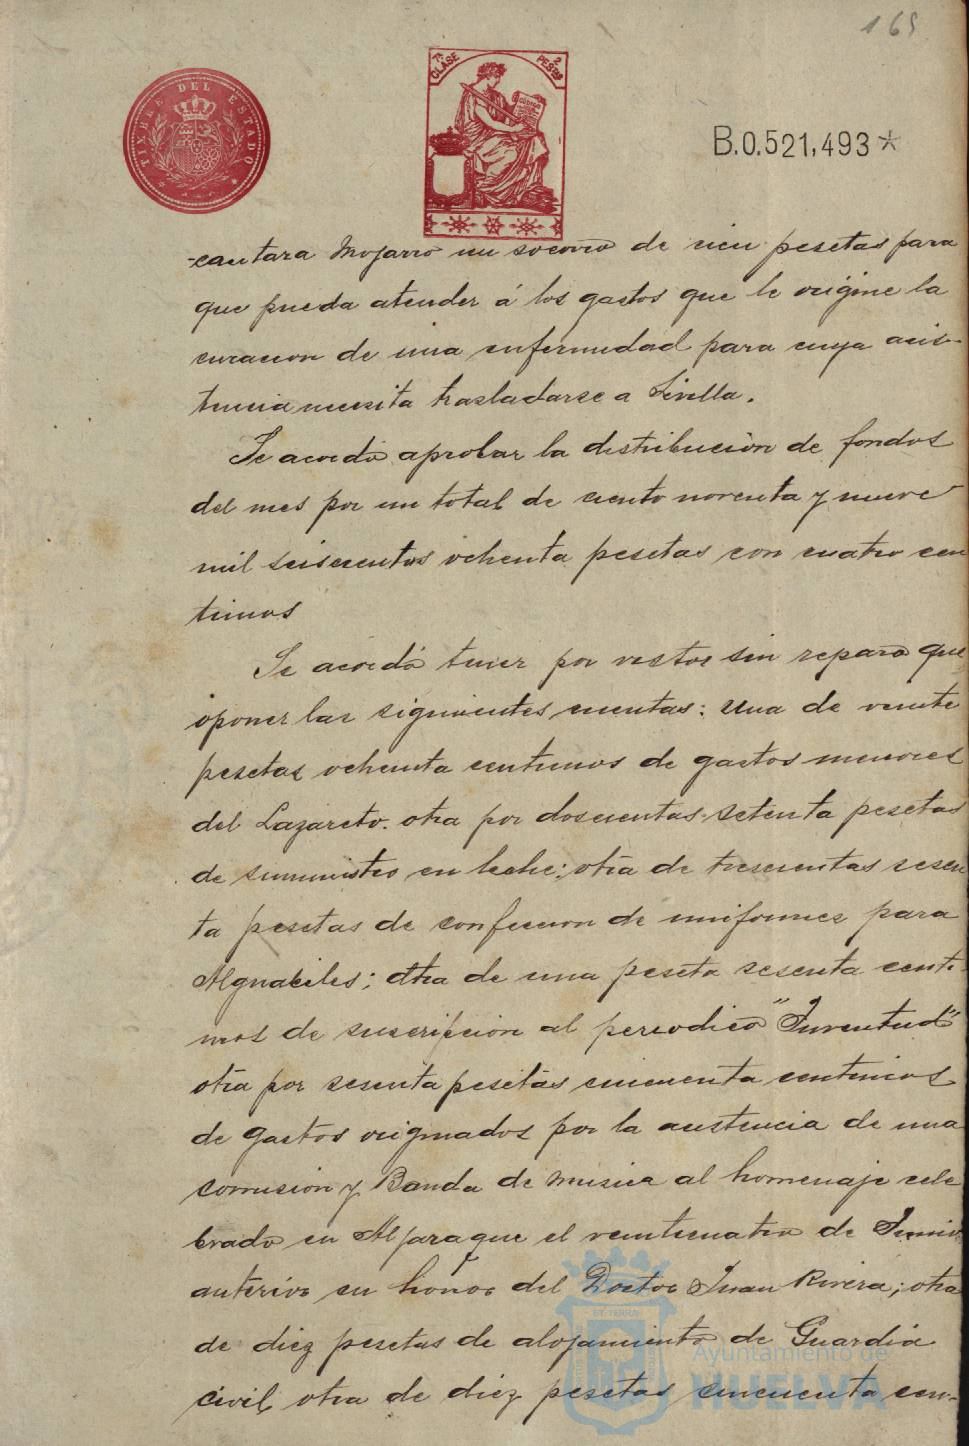 165
TIMBRE DEL ESTADO
7ª CLASE
2 PESETAS
B.0.521,493*
-cantara Mojarro un socorro de cien pesetas para
que pueda atender á los gastos que le origine la
curacion de una enfermedad para cuya asis-
tencia necesita trasladarse a Sevilla.
Se acordó aprobar la distribución de fondos
del mes por un total de ciento noventa y nueve
mil seiscientas ochenta pesetas con cuatro cen
timos
Se acordó tener por vistas sin reparo que
oponer las siguientes cuentas: Una de veinte
pesetas ochenta centimos de gastos menores
del Lazareto. otra por doscientas setenta pesetas
de suministro en leche: otra de trescientas sesen
ta pesetas de confeccion de uniformes para
Alguaciles; otra de una peseta sesenta centi
mos de suscripción al periodico "Juventud"
otra por sesenta pesetas cincuenta centimos
de gastos originados por la asistencia de una
comision y Banda de musica al homenaje cele
brado en Aljaraque el veinticuatro de Junio
anterior en honor del Doctor Juan Rivera; otra
de diez pesetas de alojamiento de Guardia
civil, otra de diez pesetas cincuenta cen-
Ayuntamiento de
HUELVA